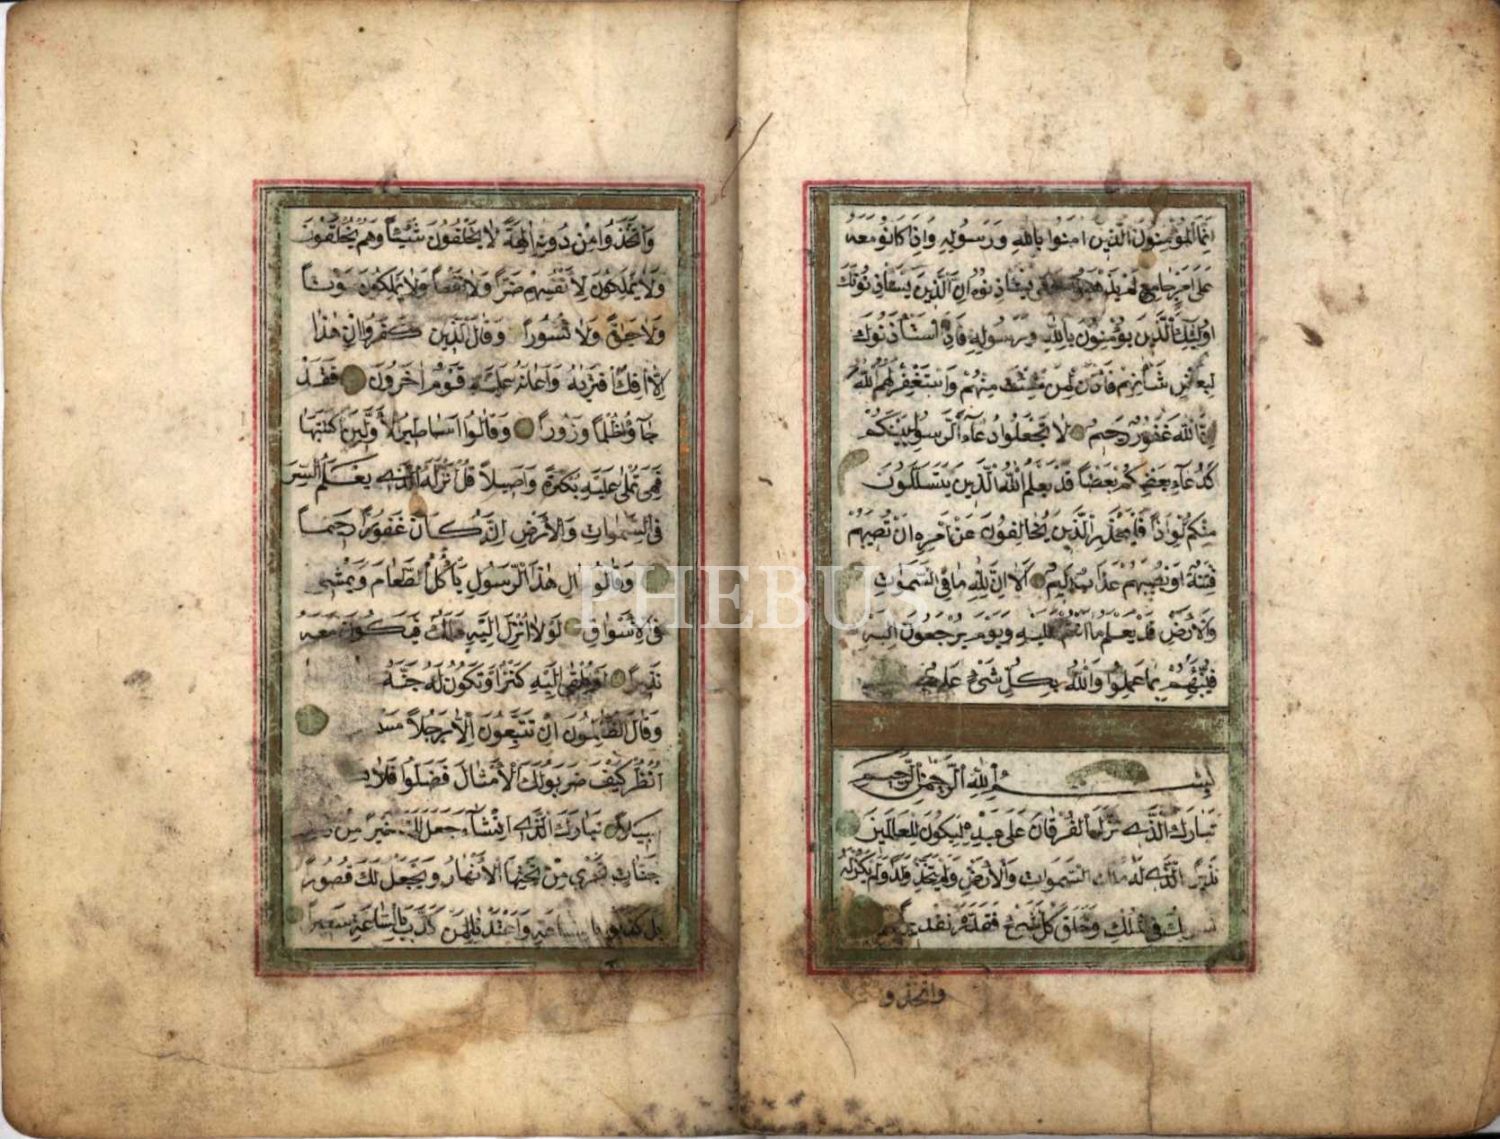 انما المؤمنون الذين امنوا بالله ورسوله واذا كانوا معه
على امر جامع لم يذهبوا حتى يستاذنوه ان الذين يستاذنونك
اولئك الذين يؤمنون بالله ورسوله فاذا استاذنوك
لبعض شانهم فاذن لمن شئت منهم واستغفر لهم الله
ان الله غفور رحيم لا تجعلوا دعاء الرسول بينكم
كدعاء بعضكم بعضا قد يعلم الله الذين يتسللون
منكم لواذا فليحذر الذين يخالفون عن امره ان تصيبهم
فتنة او يصيبهم عذاب اليم الا ان لله ما فى السموات
والارض قد يعلم ما انتم عليه ويوم يرجعون اليه
فينبئهم بما عملوا والله بكل شىء عليم
بسم الله الرحمن الرحيم
تبارك الذى نزل الفرقان على عبده ليكون للعالمين
نذيرا الذى له ملك السموات والارض ولم يتخذ ولدا ولم يكن له
شريك فى الملك وخلق كل شىء فقدره تقديرا
واتخذوا
واتخذوا من دونه الهة لا يخلقون شيئا وهم يخلقون
ولا يملكون لانفسهم ضرا ولا نفعا ولا يملكون موتا
ولا حيوة ولا نشورا وقال الذين كفروا ان هذا
الا افك افتريه واعانه عليه قوم اخرون فقد
جاؤ ظلما وزورا وقالوا اساطير الاولين اكتتبها
فهى تملى عليه بكرة واصيلا قل انزله الذى يعلم السر
فى السموات والارض انه كان غفورا رحيما
وقالوا مال هذا الرسول ياكل الطعام ويمشى
فى الاسواق لولا انزل اليه ملك فيكون معه
نذيرا او يلقى اليه كنز او تكون له جنة
وقال الظالمون ان تتبعون الا رجلا مسحورا
انظر كيف ضربوا لك الامثال فضلوا فلا
سبيلا تبارك الذى ان شاء جعل لك خيرا من
جنات تجرى من تحتها الانهار ويجعل لك قصورا
بل كذبوا بالساعة واعتدنا لمن كذب بالساعة سعيرا
PHEBUS